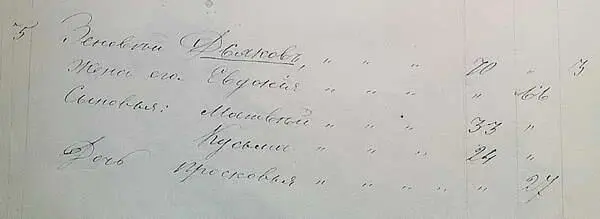 75 Зеновий Дьяковъ, " " " 70 " 3
Жена его Евдокія " " " " 66
Сыновья: Матвей " " " 33 "
Кузьма " " " 24 "
Дочь Просковья " " " " " 27